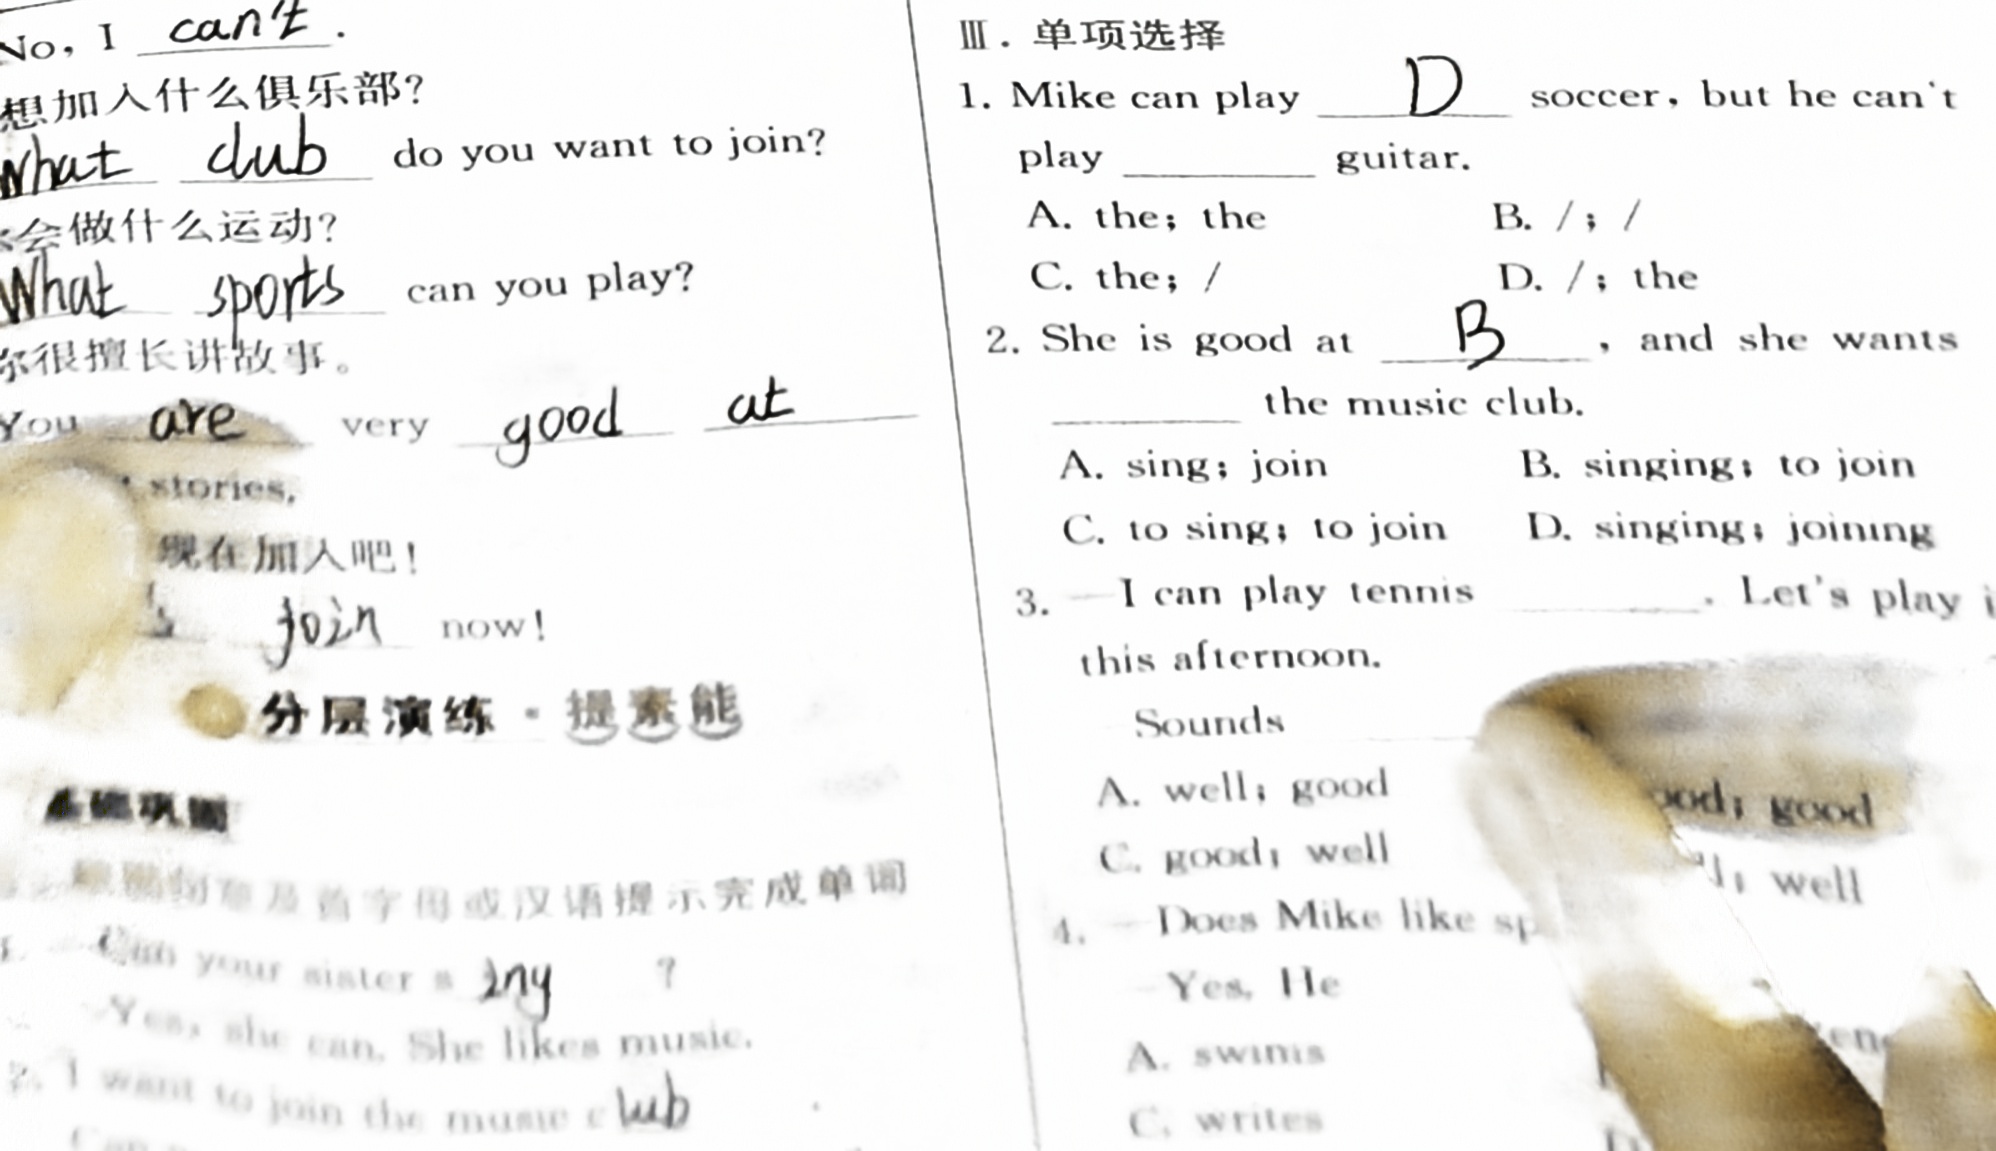 No, I can't.
想加入什么俱乐部?
What club do you want to join?
会做什么运动?
What sports can you play?
你很擅长讲故事。
You are very good at
stories.
现在加入吧!
join now!
分层演练·提素能
基础巩固
及首字母或汉语提示完成单词
Can your sister s ing ?
Yes, she can. She likes music.
2. I want to join the music club
Ⅲ. 单项选择
1. Mike can play D soccer, but he can't
play ________ guitar.
A. the; the B. /; /
C. the; / D. /; the
2. She is good at B , and she wants
________ the music club.
A. sing; join B. singing; to join
C. to sing; to join D. singing; joining
3. —I can play tennis ________. Let's play
this afternoon.
Sounds
A. well; good ood; good
C. good; well l; well
4. —Does Mike like sp
Yes. He
A. swims
C. writes